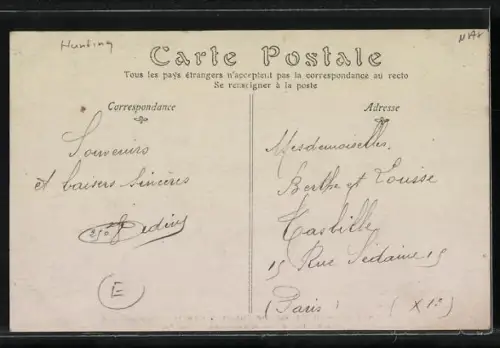 Hunting
Carte Postale
Tous les pays étrangers n'acceptent pas la correspondance au recto
Se renseigner à la poste
Correspondance
Adresse
Souvenirs
et baisers sincères
Mesdemoiselles
Berthe et Louisse
15 Rue Sedaine 15
(Paris) (XIe)
E